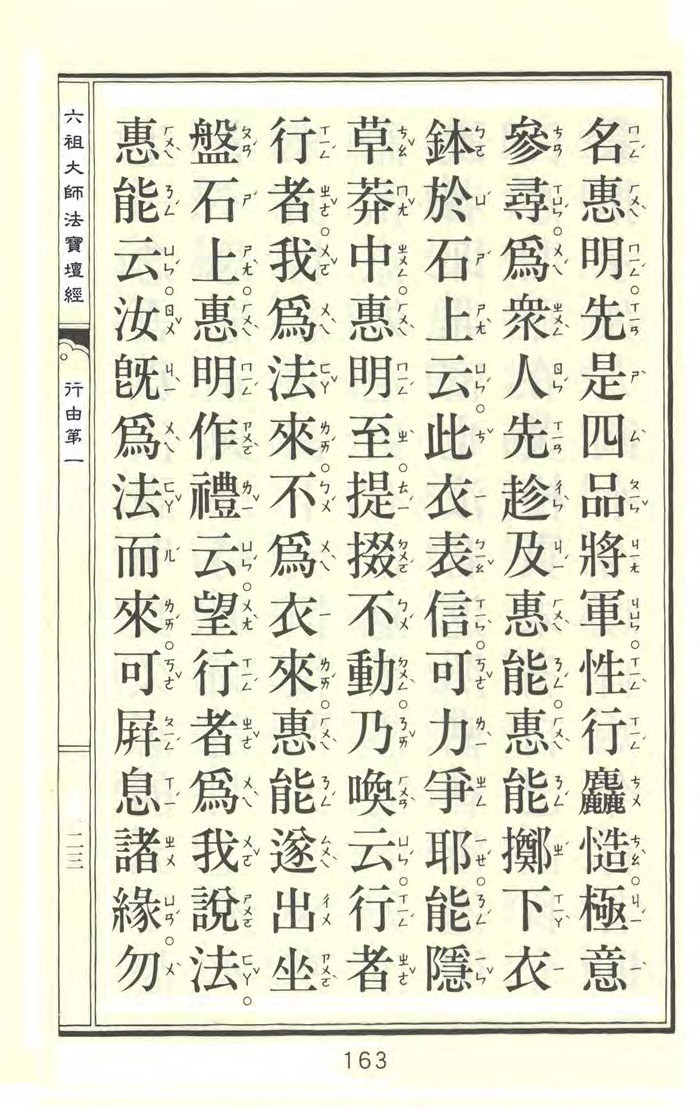 名惠明先是四品將軍性行麤慥極意
參尋爲衆人先趁及惠能惠能擲下衣
鉢於石上云此衣表信可力爭耶能隱
草莽中惠明至提掇不動乃喚云行者
行者我爲法來不爲衣來惠能遂出坐
盤石上惠明作禮云望行者爲我說法
惠能云汝旣爲法而來可屛息諸緣勿
六祖大師法寶壇經
行由第一
二三
163